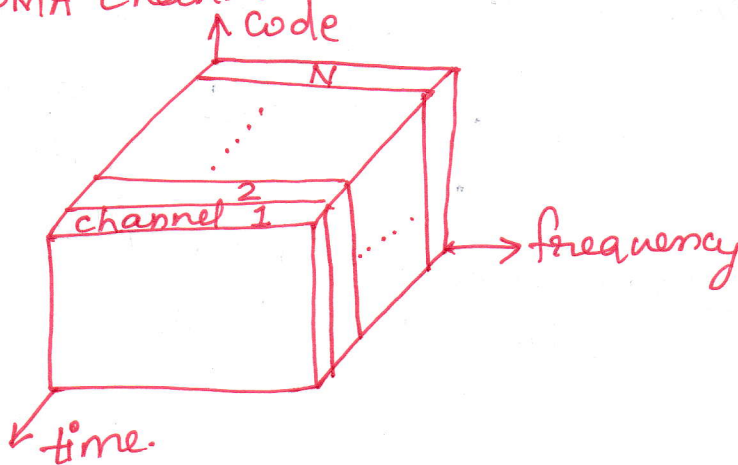 code
N
2
channel 1
frequency
time.